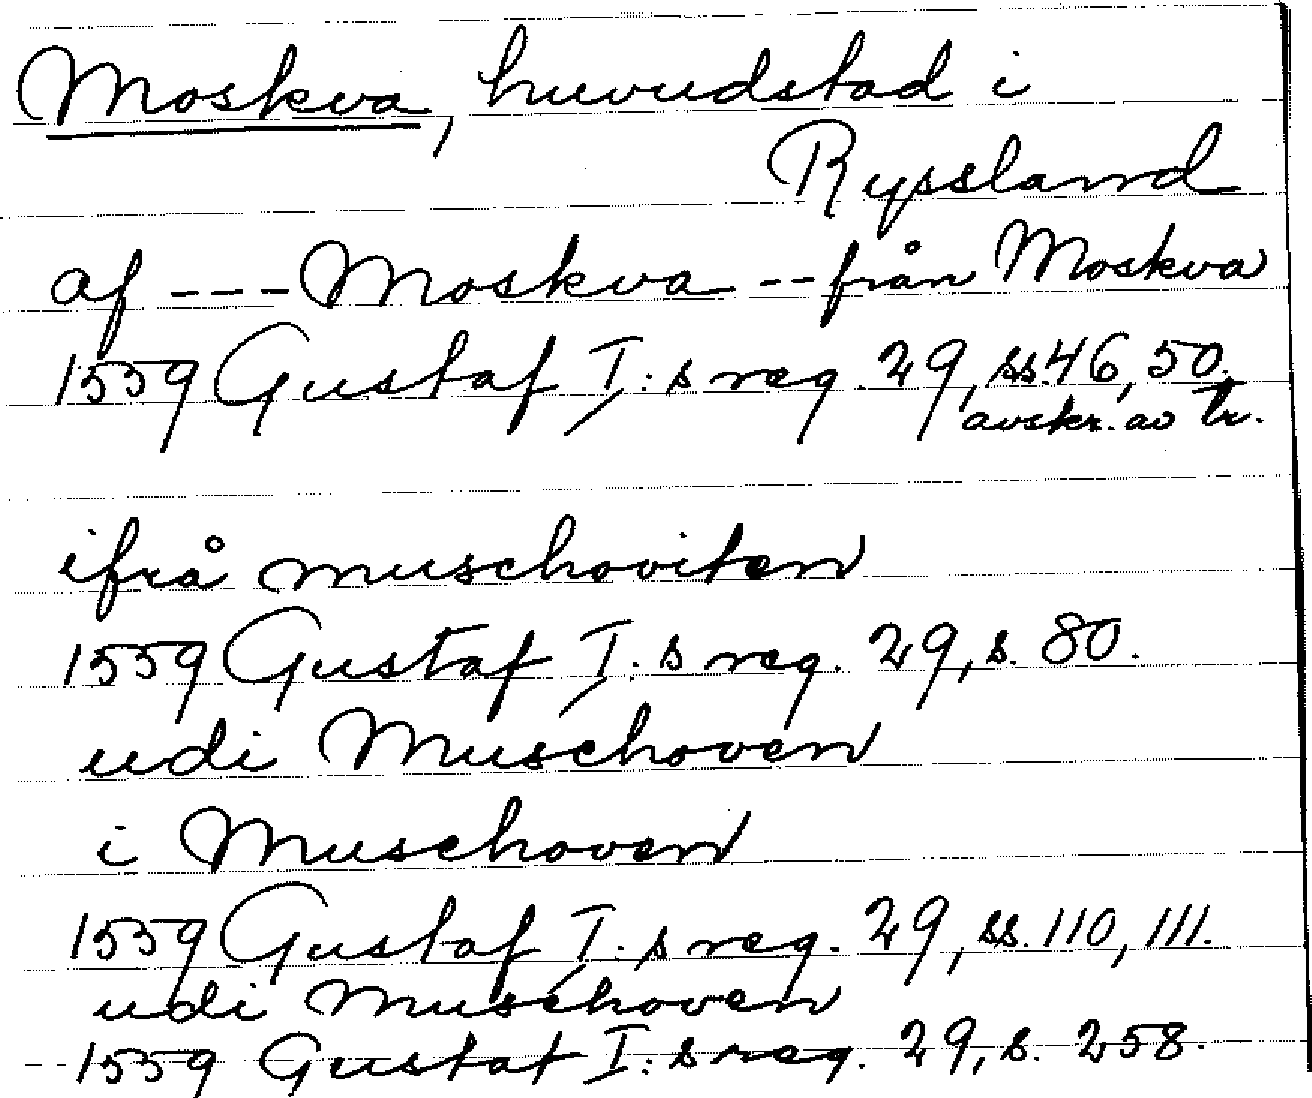 Moskva, huvudstad i
Ryssland
af --- Moskva -- från Moskva
1559 Gustaf I:s reg. 29, ss. 46, 50.
avskr. av tr.
ifrå muschoviten
1559 Gustaf I:s reg. 29, s. 80.
udi Muschoven
i Muschoven
1559 Gustaf I:s reg. 29, ss. 110, 111.
udi Muschoven
1559 Gustaf I:s reg. 29, s. 258.